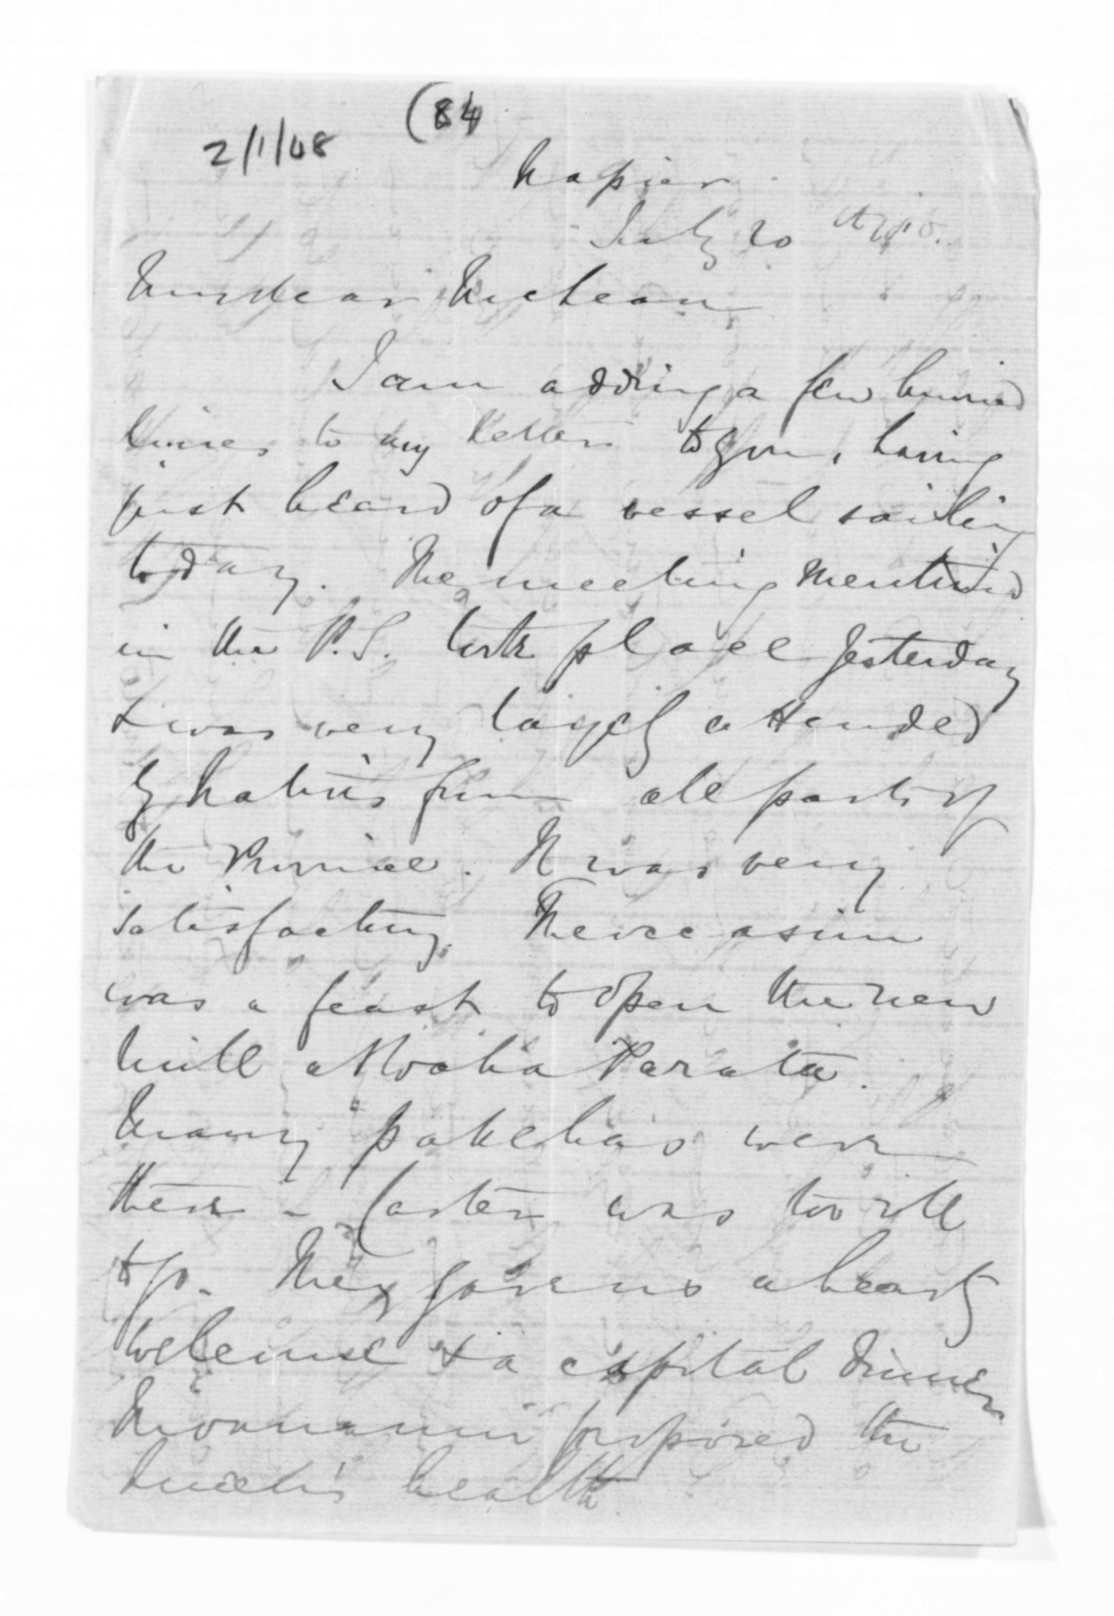 (84)
2/1/08
Napier
July 20
My dear McLean
I am adding a few hurried
lines to my letter to you, having
just heard of a vessel sailing
today. The meeting mentioned
in the P.S. took place yesterday
& was very largely attended
by Natives from all parts of
the Province. It was very
satisfactory. The occasion
was a feast to open the new
mill at Moka Parata.
Many pakehas were
there - Carter was too ill
to go. They gave us a hearty
welcome & a capital dinner
proposed the
Queen's health.